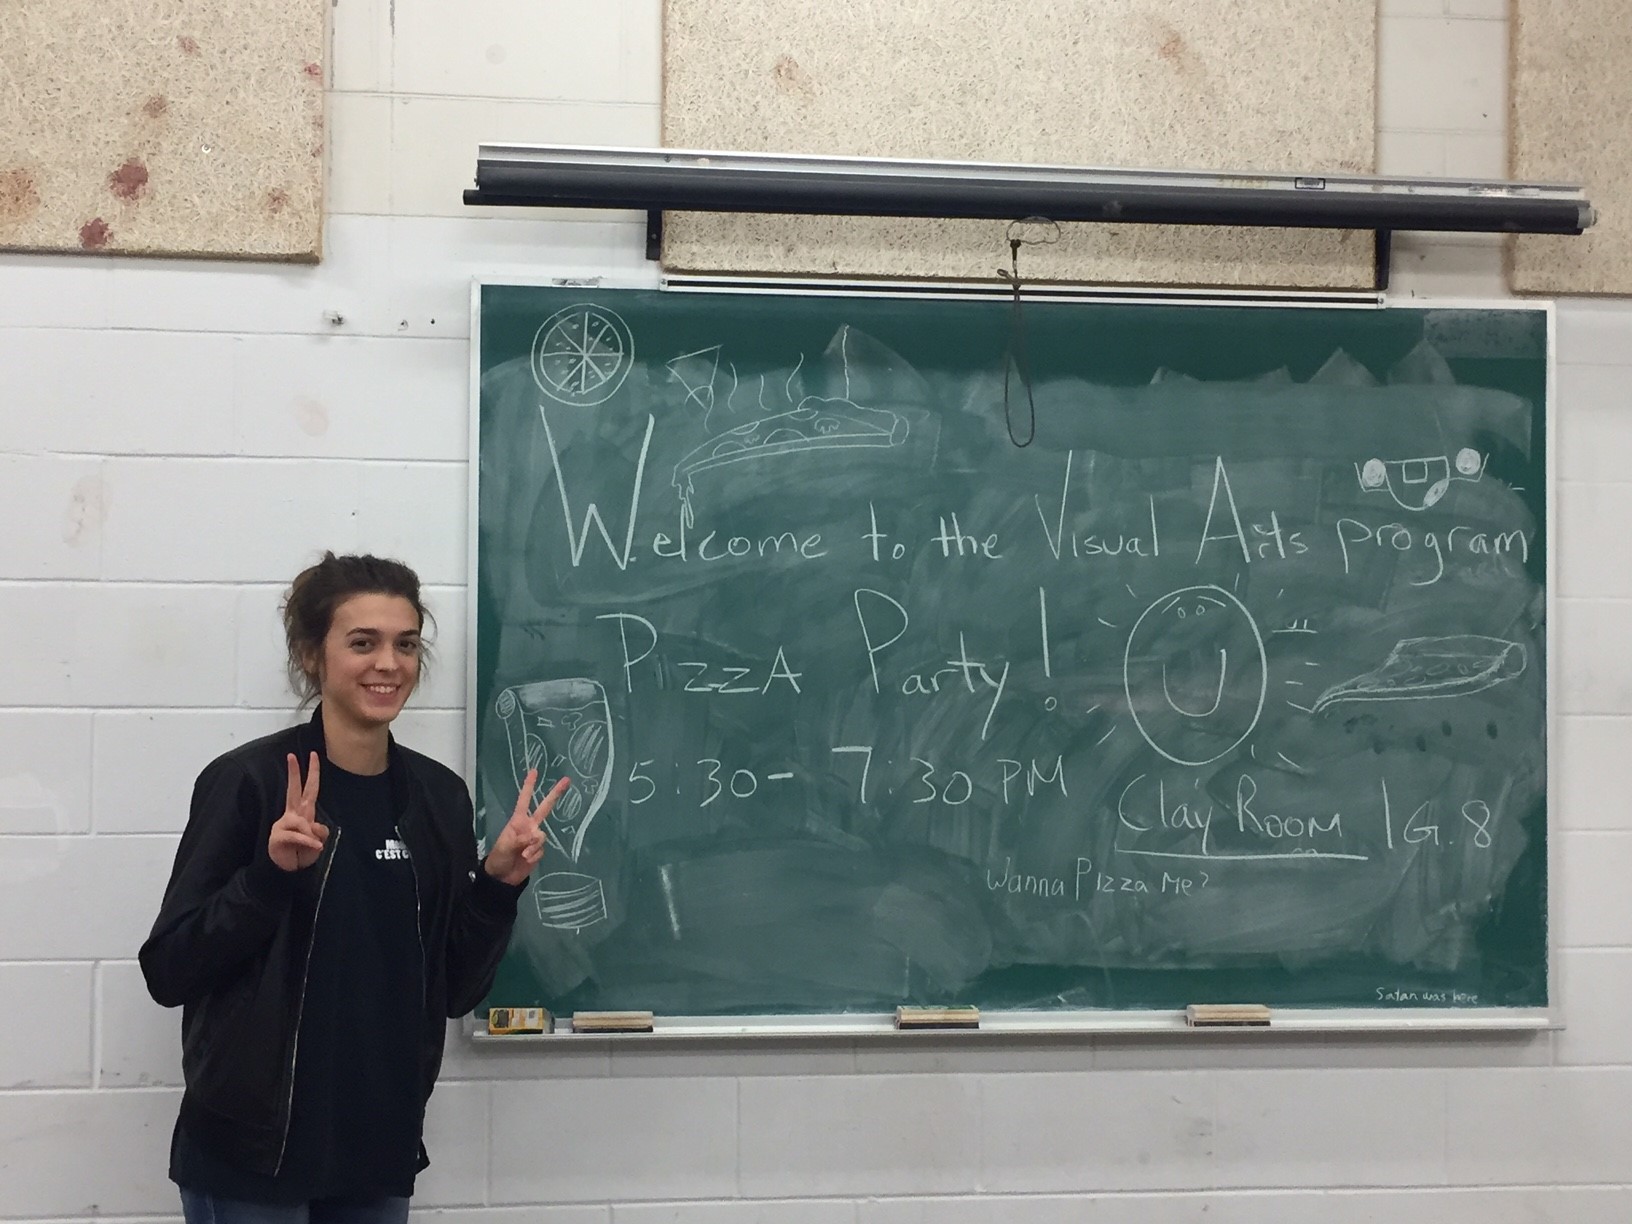 Welcome to the Visual Arts program
PizzA Party!
5:30- 7:30 PM
Clay Room 1G.8
Wanna Pizza Me?
Satan was here
C'EST